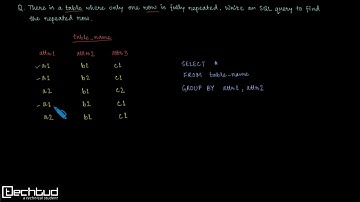 Q. There is a table where only one row is fully repeated. Write an SQL query to find
the repeated row.
table_name
attr1 attr2 attr3
a1 b1 c1
a1 b2 c1
a2 b1 c2
a1 b1 c1
a2 b2 c1
SELECT *
FROM table_name
GROUP BY attr1, attr2
techtud
a technical student